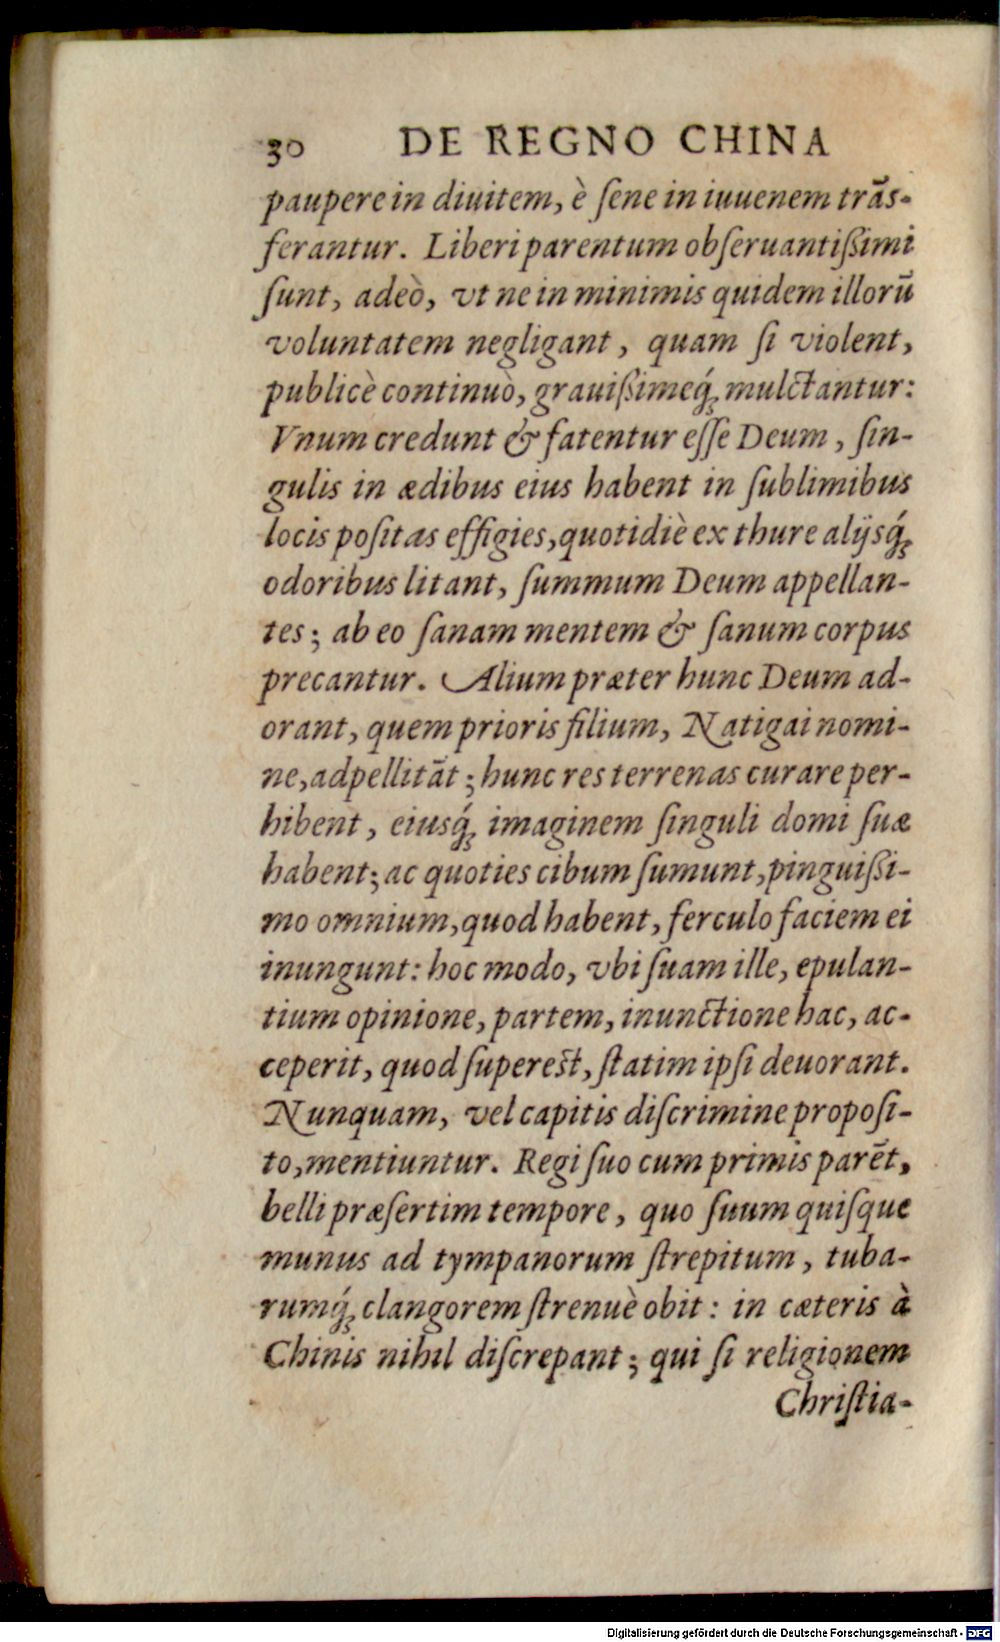 30 DE REGNO CHINA
paupere in diuitem, è ſene in iuuenem trãs-
ferantur. Liberi parentum obſeruantißimi
ſunt, adeò, vt ne in minimis quidem illorũ
voluntatem negligant, quam ſi violent,
publicè continuò, grauißimeq́ꝫ mulctantur:
Vnum credunt & fatentur eſſe Deum, ſin-
gulis in ædibus eius habent in ſublimibus
locis poſitas effigies, quotidiè ex thure alijsq́ꝫ
odoribus litant, ſummum Deum appellan-
tes; ab eo ſanam mentem & ſanum corpus
precantur. Alium præter hunc Deum ad-
orant, quem prioris filium, Natigai nomi-
ne, adpellitãt; hunc res terrenas curare per-
hibent, eiusq́ꝫ imaginem ſinguli domi ſuæ
habent; ac quoties cibum ſumunt, pinguißi-
mo omnium, quod habent, ferculo faciem ei
inungunt: hoc modo, vbi ſuam ille, epulan-
tium opinione, partem, inunctione hac, ac-
ceperit, quod ſupereſt, ſtatim ipſi deuorant.
Nunquam, vel capitis diſcrimine propoſi-
to, mentiuntur. Regi ſuo cum primis parẽt,
belli præſertim tempore, quo ſuum quiſque
munus ad tympanorum ſtrepitum, tuba-
rumq́ꝫ clangorem ſtrenuè obit: in cæteris à
Chinis nihil diſcrepant; qui ſi religionem
Chriſtia-
Digitalisierung gefördert durch die Deutsche Forschungsgemeinschaft - DFG